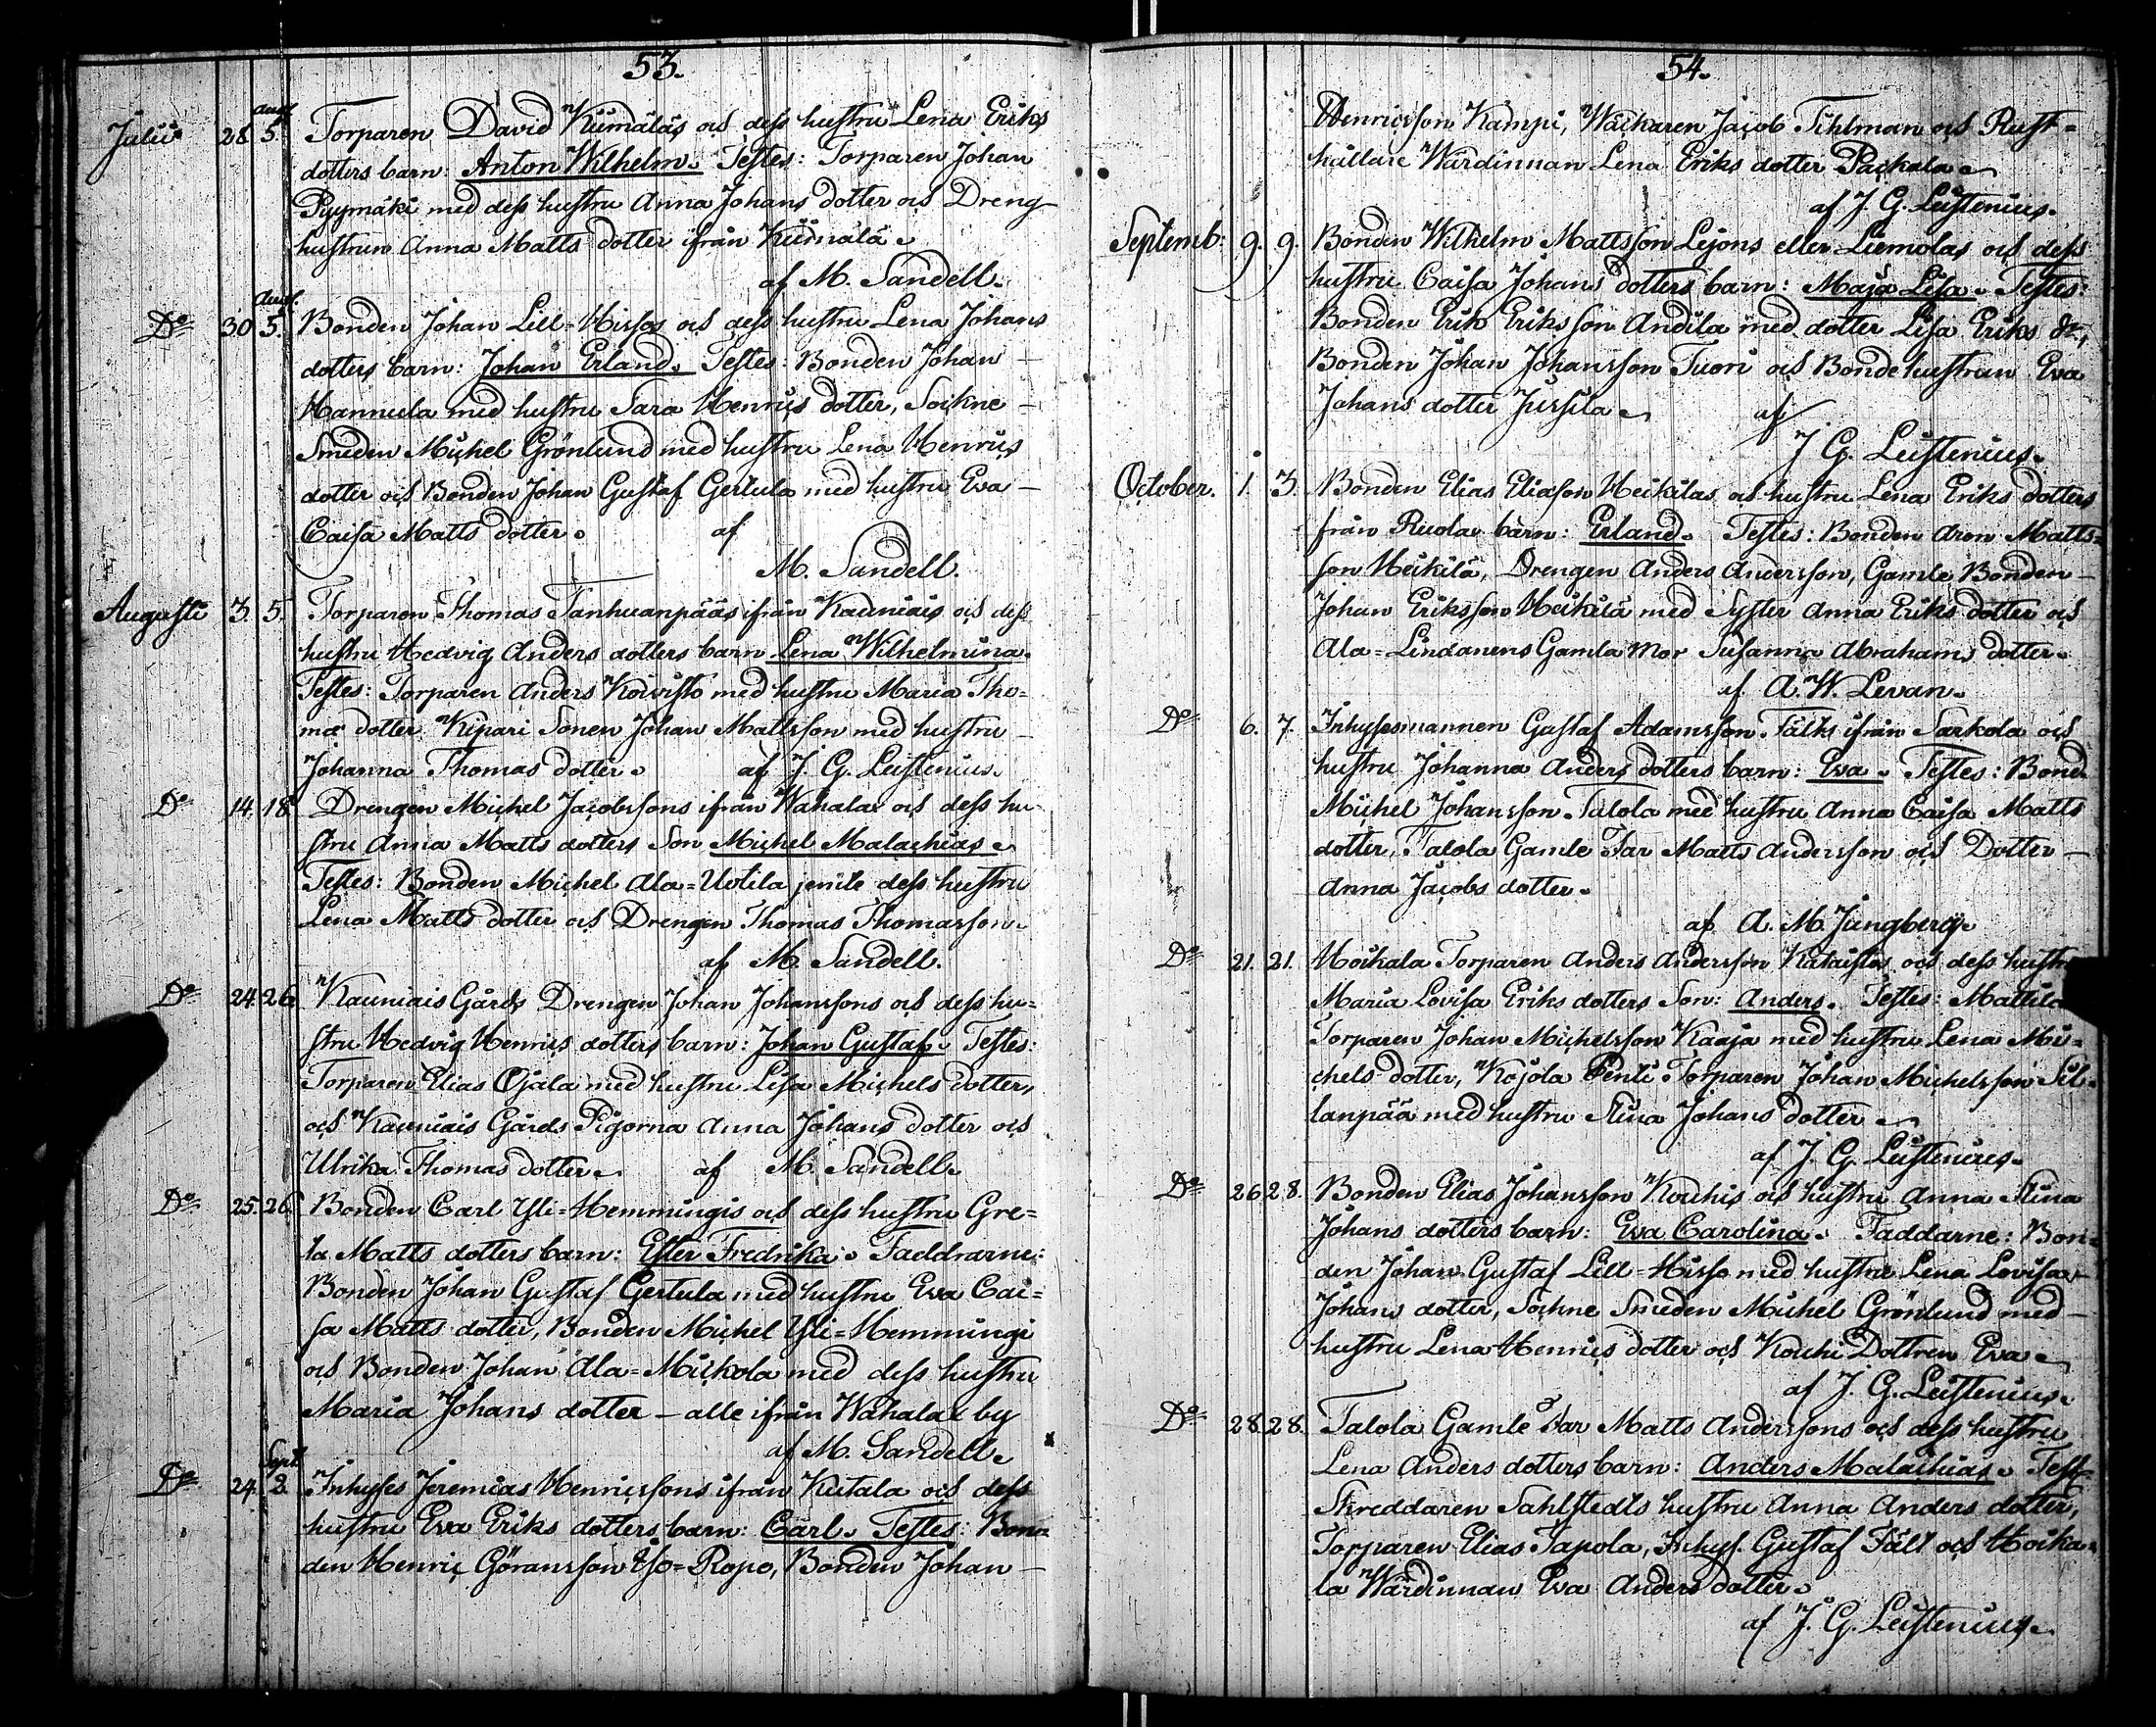 53.
Julii 28. Aug. 5. Torparen David Kiimäläs och dess hustru Lena Eriks
dotters barn: Anton Wilhelm. Testes: Torparen Johan
Pyymäki med dess hustru Anna Johans dotter och Dreng
hustrun Anna Matts dotter ifrån Kiimälä.
af M. Sandell.
Do 30. Aug. 5. Bonden Johan Lill-Hissas och dess hustru Lena Johans
dotters barn: Johan Erland. Testes: Bonden Johan
Hannula med hustru Sara Henrics dotter, Sockne
Smeden Michel Grönlund med hustru Lena Henrics
dotter och Bonden Johan Gustaf Gertula med hustru Eva
Caisa Matts dotter. af
M. Sandell.
Augusti 3. 5. Torparen Thomas Tanhuanpääs ifrån Kauniais och dess
hustru Hedvig Anders dotters barn Lena Wilhelmina.
Testes: Torparen Anders Koivisto med hustru Maria Tho-
mæ dotter Kipari Sonen Johan Mattsson med hustru
Johanna Thomas dotter. af J. G. Leistenius.
Do 14. 18. Drengen Michel Jacobssons ifrån Wahala och dess hu-
stru Anna Matts dotters Son Michel Malachias.
Testes: Bonden Michel Ala-Uotila jemte dess hustru
Lena Matts dotter och Drengen Thomas Thomasson.
af M. Sandell.
Do 24. 26. Kauniais Gårds Drengen Johan Johanssons och dess hu-
stru Hedvig Henrics dotters barn: Johan Gustaf. Testes:
Torparen Elias Ojala med hustru Lisa Michels dotter,
och Kauniais Gårds Pigorna Anna Johans dotter och
Ulrika Thomas dotter. af M. Sandell.
Do 25. 26. Bonden Carl Yli-Hemmingis och dess hustru Gre-
ta Matts dotters barn: Ester Fredrika. Faddrarne:
Bonden Johan Gustaf Gertula med hustru Eva Cai-
sa Matts dotter, Bonden Michel Yli-Hemmingi
och Bonden Johan Ala-Mickola med dess hustru
Maria Johans dotter – alle ifrån Wahala by
af M. Sandell.
Do 24. Sept. 2. Inhyses Jeremias Henricssons ifrån Kutala och dess
hustru Eva Eriks dotters barn: Carl. Testes: Bon-
den Henric Göransson Iso-Ropo, Bonden Johan
54.
Henricsson Kämpi, Wäckaren Jacob Tihlman och Rust-
hållare Wärdinnan Lena Eriks dotter Packala.
af J. G. Leistenius.
Septemb: 9. 9. Bonden Wilhelm Mattsson Lejons eller Liemolas och dess
hustru Caisa Johans dotters barn: Maja Lisa. Testes:
Bonden Erik Eriksson Andila med dotter Lisa Eriks dr,
Bonden Johan Johansson Tuori och Bondehustrun Eva
Johans dotter Jussila. af
J. G. Leistenius.
October. 1. 3. Bonden Elias Eliasson Heikiläs och hustru Lena Eriks dotters
från Ruola barn: Erland. Testes: Bonden Aron Matts-
son Heikilä, Drengen Anders Andersson, Gamle Bonden
Johan Eriksson Heikilä med Syster Anna Eriks dotter och
Ala-Lindanens Gamla Mor Susanna Abrahams dotter.
af A. W. Levan.
Do 6. 7. Inhysesmannen Gustaf Adamsson Fälts ifrån Sarkola och
hustru Johanna Anders dotters barn: Eva. Testes: Bond.
Michel Johansson Talola med hustru Anna Caisa Matts
dotter, Talola Gamle Far Matts Andersson och Dotter
Anna Jacobs dotter.
af A. M. Jungberg.
Do 21. 21. Hoikala Torparen Anders Andersson Kataistos och dess hustru
Maria Lovisa Eriks dotters Son: Anders. Testes: Mattila
Torparen Johan Michelsson Kaaja med hustru Lena Mi-
chels dotter, Kojola Pentti Torparen Johan Michelsson Sil-
lanpää med hustru Stina Johans dotter.
af J. G. Leistenius.
Do 26. 28. Bonden Elias Johansson Kouhis och hustru Anna Stina
Johans dotters barn: Eva Carolina. Faddarne: Bon-
den Johan Gustaf Lill-Hissa med hustru Lena Lovisa
Johans dotter, Sockne Smeden Michel Grönlund med
hustru Lena Henrics dotter och Kouhi Dottren Eva.
af J. G. Leistenius.
Do 28. 28. Talola Gamle Far Matts Anderssons och dess hustru
Lena Anders dotters barn: Anders Malachias. Test.
Skreddaren Sahlstedts hustru Anna Anders dotter,
Torparen Elias Tapola, Inhys. Gustaf Fält och Hoika-
la Wärdinnan Eva Anders dotter.
af J. G. Leistenius.